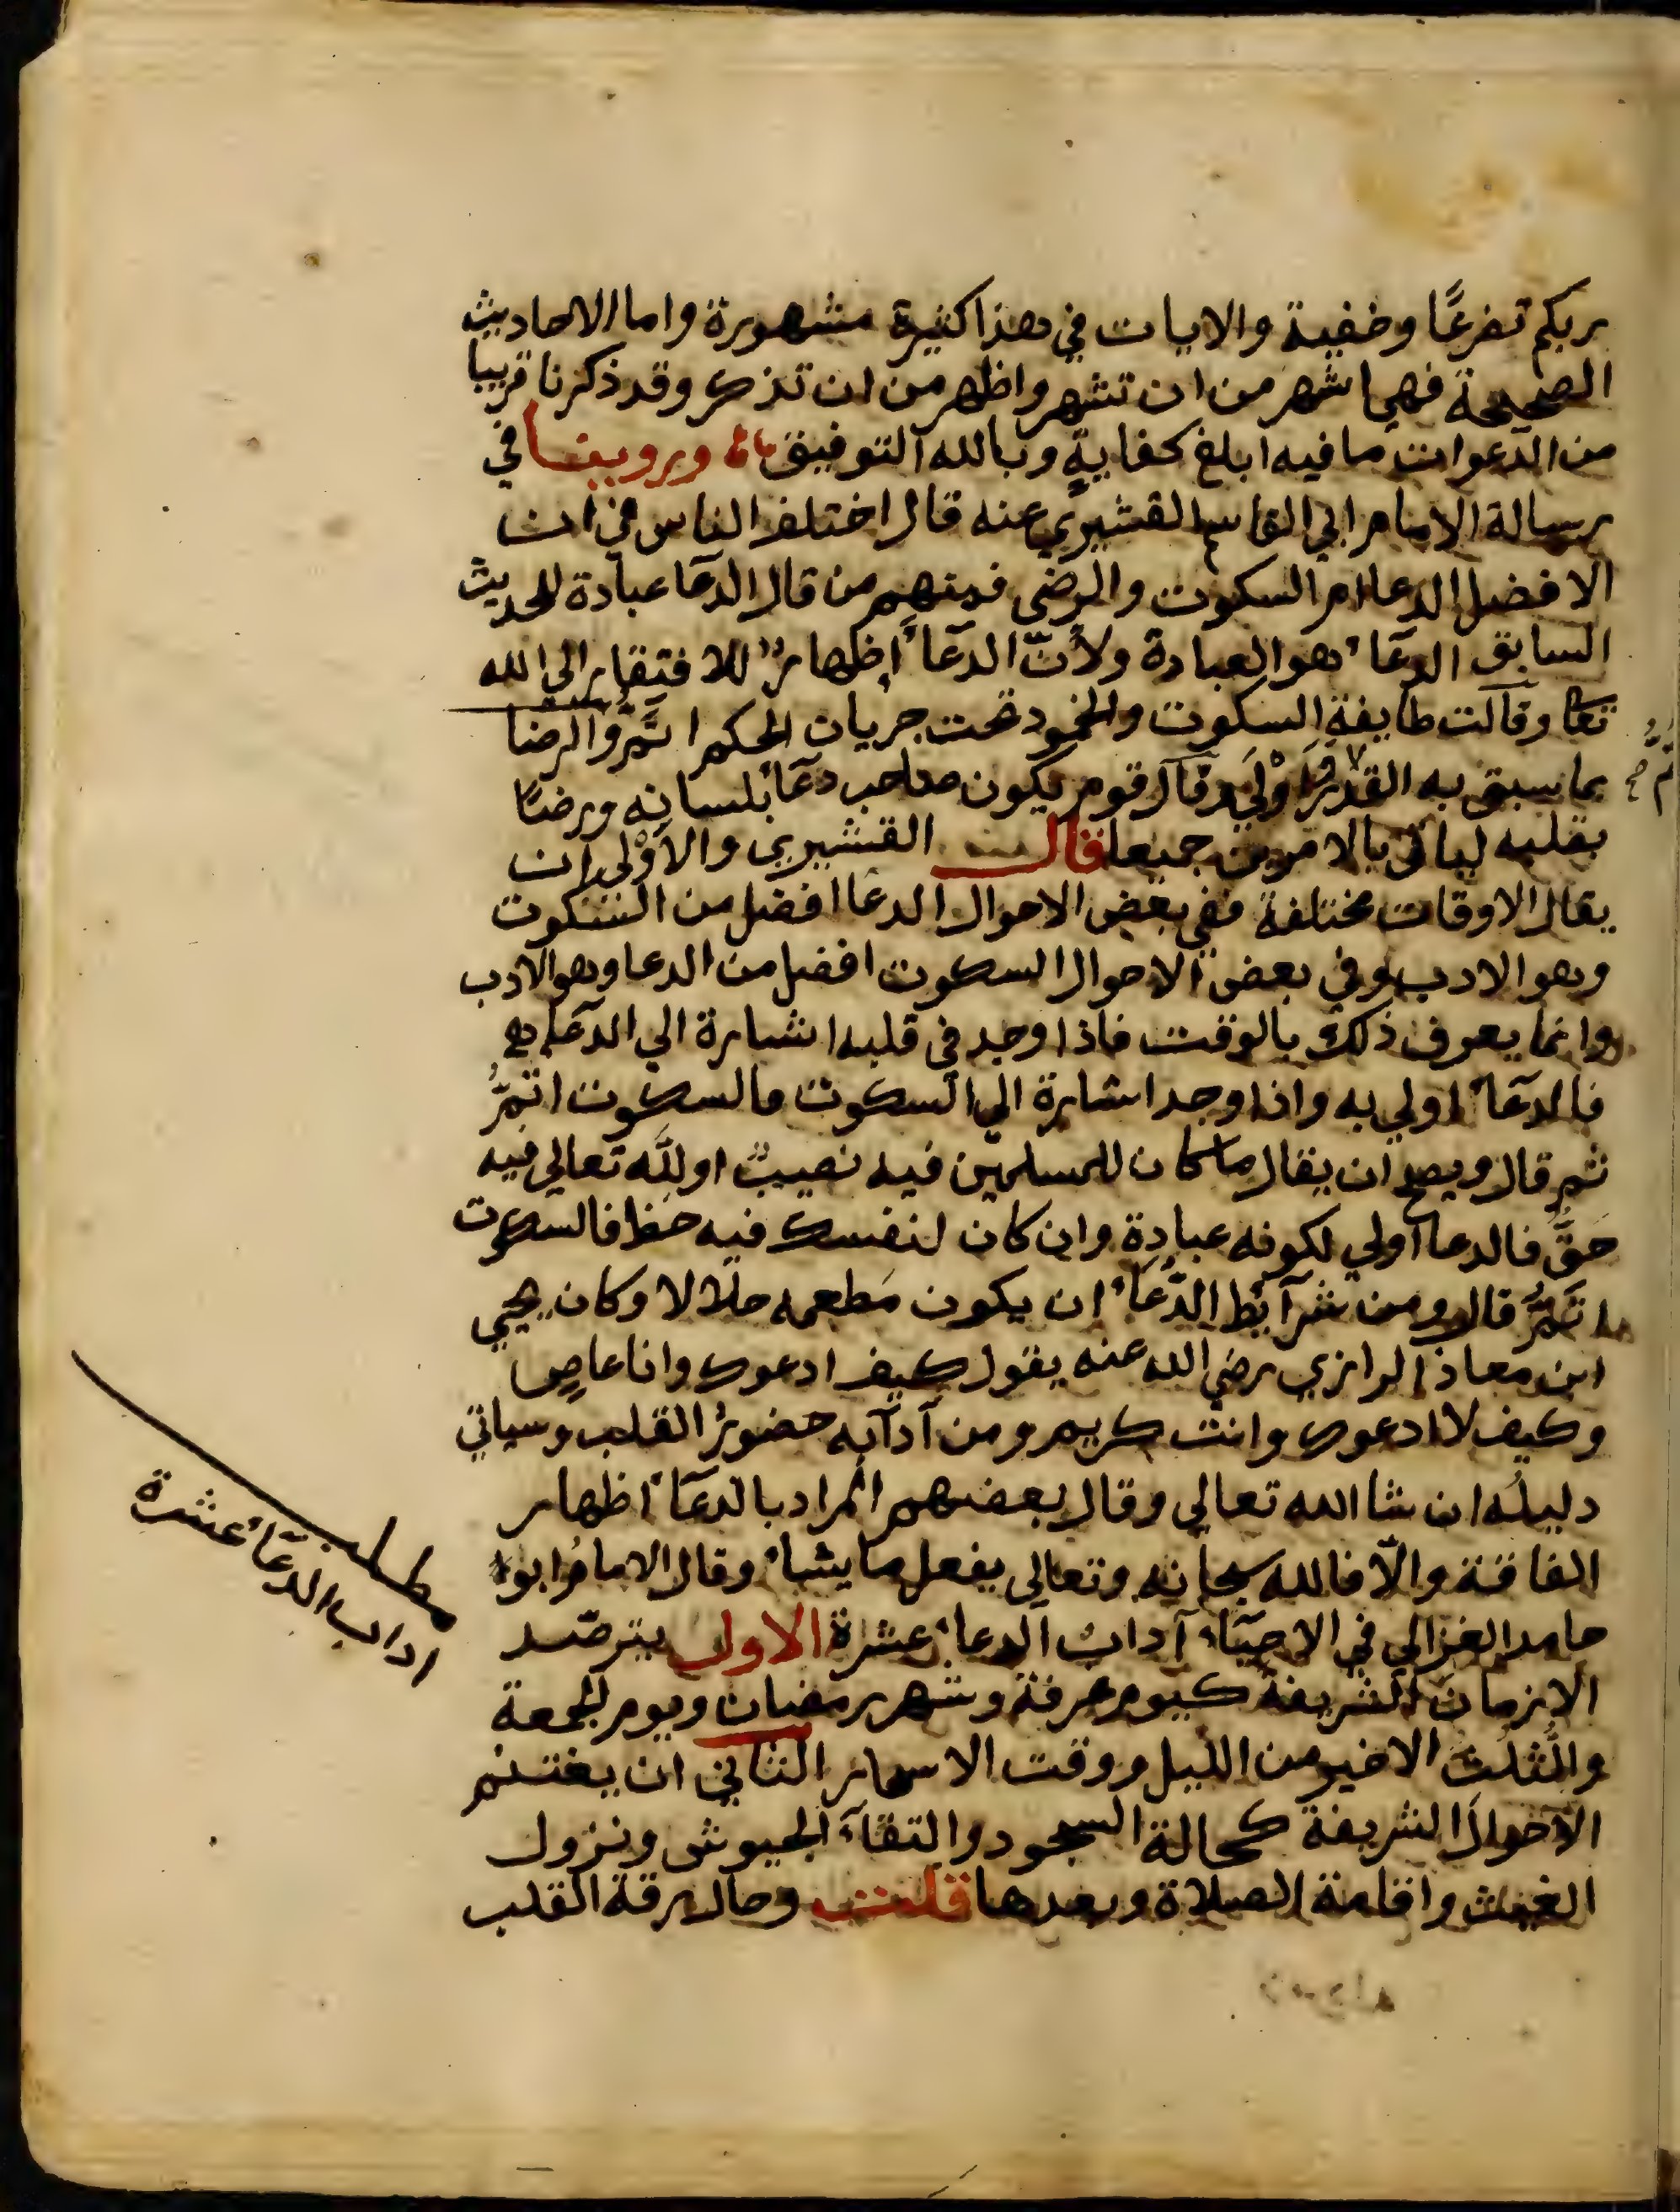 ربكم تضرعًا وخفية والايات في هذا كثيرة مشهورة واما الاحاديث
الصحيحة فهي اشهر من ان تشهر واظهر من ان تذكر وقد ذكرنا قريبا
من الدعوات ما فيه ابلغ كفاية وبالله التوفيق وروينا في
رسالة الامام ابي القاسم القشيري عنه قال اختلف الناس في ان
الافضل الدعا ام السكوت والرضى فمنهم من قال الدعا عبادة للحديث
السابق الدعاء هو العبادة ولأنّ الدعاء إظهارٌ للافتقار الى الله
تعا وقالت طايفة السكوت والخمود تحت جريان الحكم اتمّ والرضا
بما سبق به القدر أولى وقال قوم يكون صاحب دعاء بلسانه ورضًا
بقلبه لياتي بالامرين جميعا قال القشيري والأولى ان
يقال الاوقات مختلفة ففي بعض الاحوال الدعا افضل من السكوت
وهو الادب وفي بعض الاحوال السكوت افضل من الدعا وهو الادب
وانما يعرف ذلك بالوقت فاذا وجد في قلبه اشارة الي الدعا
فالدعاء اولي به واذا وجد اشارة الي السكوت فالسكوت اتمُّ
ثم قال ويصح ان يقال ما كان للمسلمين فيه نصيبٌ او لله تعالي فيه
حقٌّ فالدعا اولي لكونه عبادة وان كان لنفسك فيه حظ فالسكوت
اتمُّ قال ومن شرآئط الدُّعاء ان يكون مَطعمه حلالا وكان يحيي
ابن معاذ الرازي رضي الله عنه يقول كيف ادعوك وانا عاصٍ
وكيف لا ادعوك وانت كريم ومن آدآبه حضورُ القلب وسياتي
دليلُه ان شا الله تعالي وقال بعضهم المراد بالدعاء اظهار
الفاقة والّا فالله سبحانه وتعالي يفعل ما يشاء وقال الامامُ ابوا
حامد الغزالي في الاحيَاء آداب الدعاء عشرة الاول يترصّد
الازمان الشريفة كيوم عرفة وشهر رمضان ويوم الجمعة
والثلث الاخير من الليل ووقت الاسحار الثاني ان يغتنم
الأحوالَ الشريفة كحالة السجود والتقآء الجيوش ونزول
الغيث واقامة الصلاة وبعدها قلت وحال رقة القلب
مطلب
اداب الدعاء عشرة